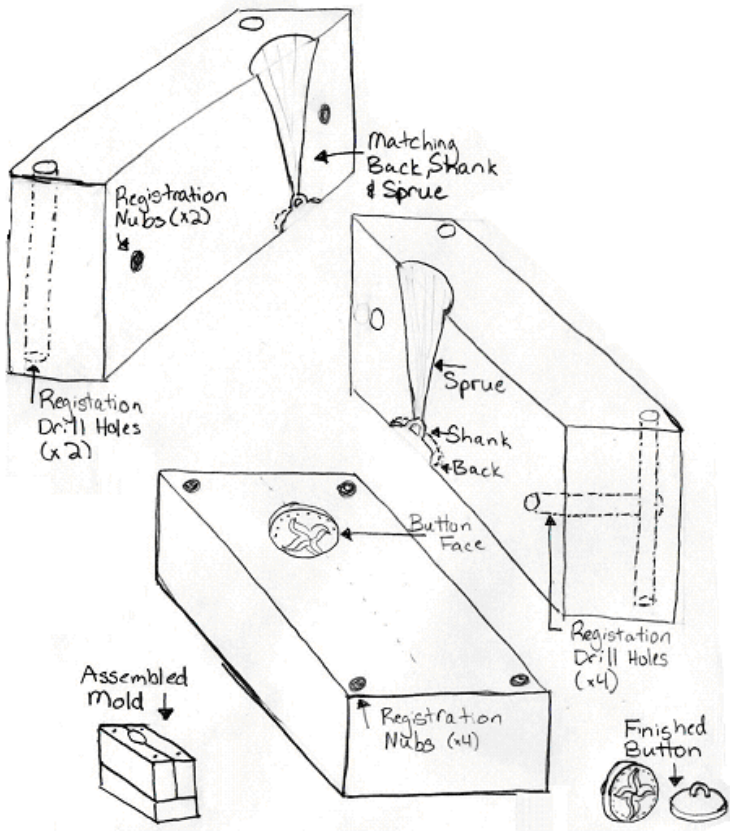 Matching
Back, Shank
& Sprue
Registration
Nubs (x2)
Registation
Drill Holes
(x2)
Sprue
Shank
Back
Button
Face
Registation
Drill Holes
(x4)
Assembled
Mold
Registration
Nubs (x4)
Finished
Button